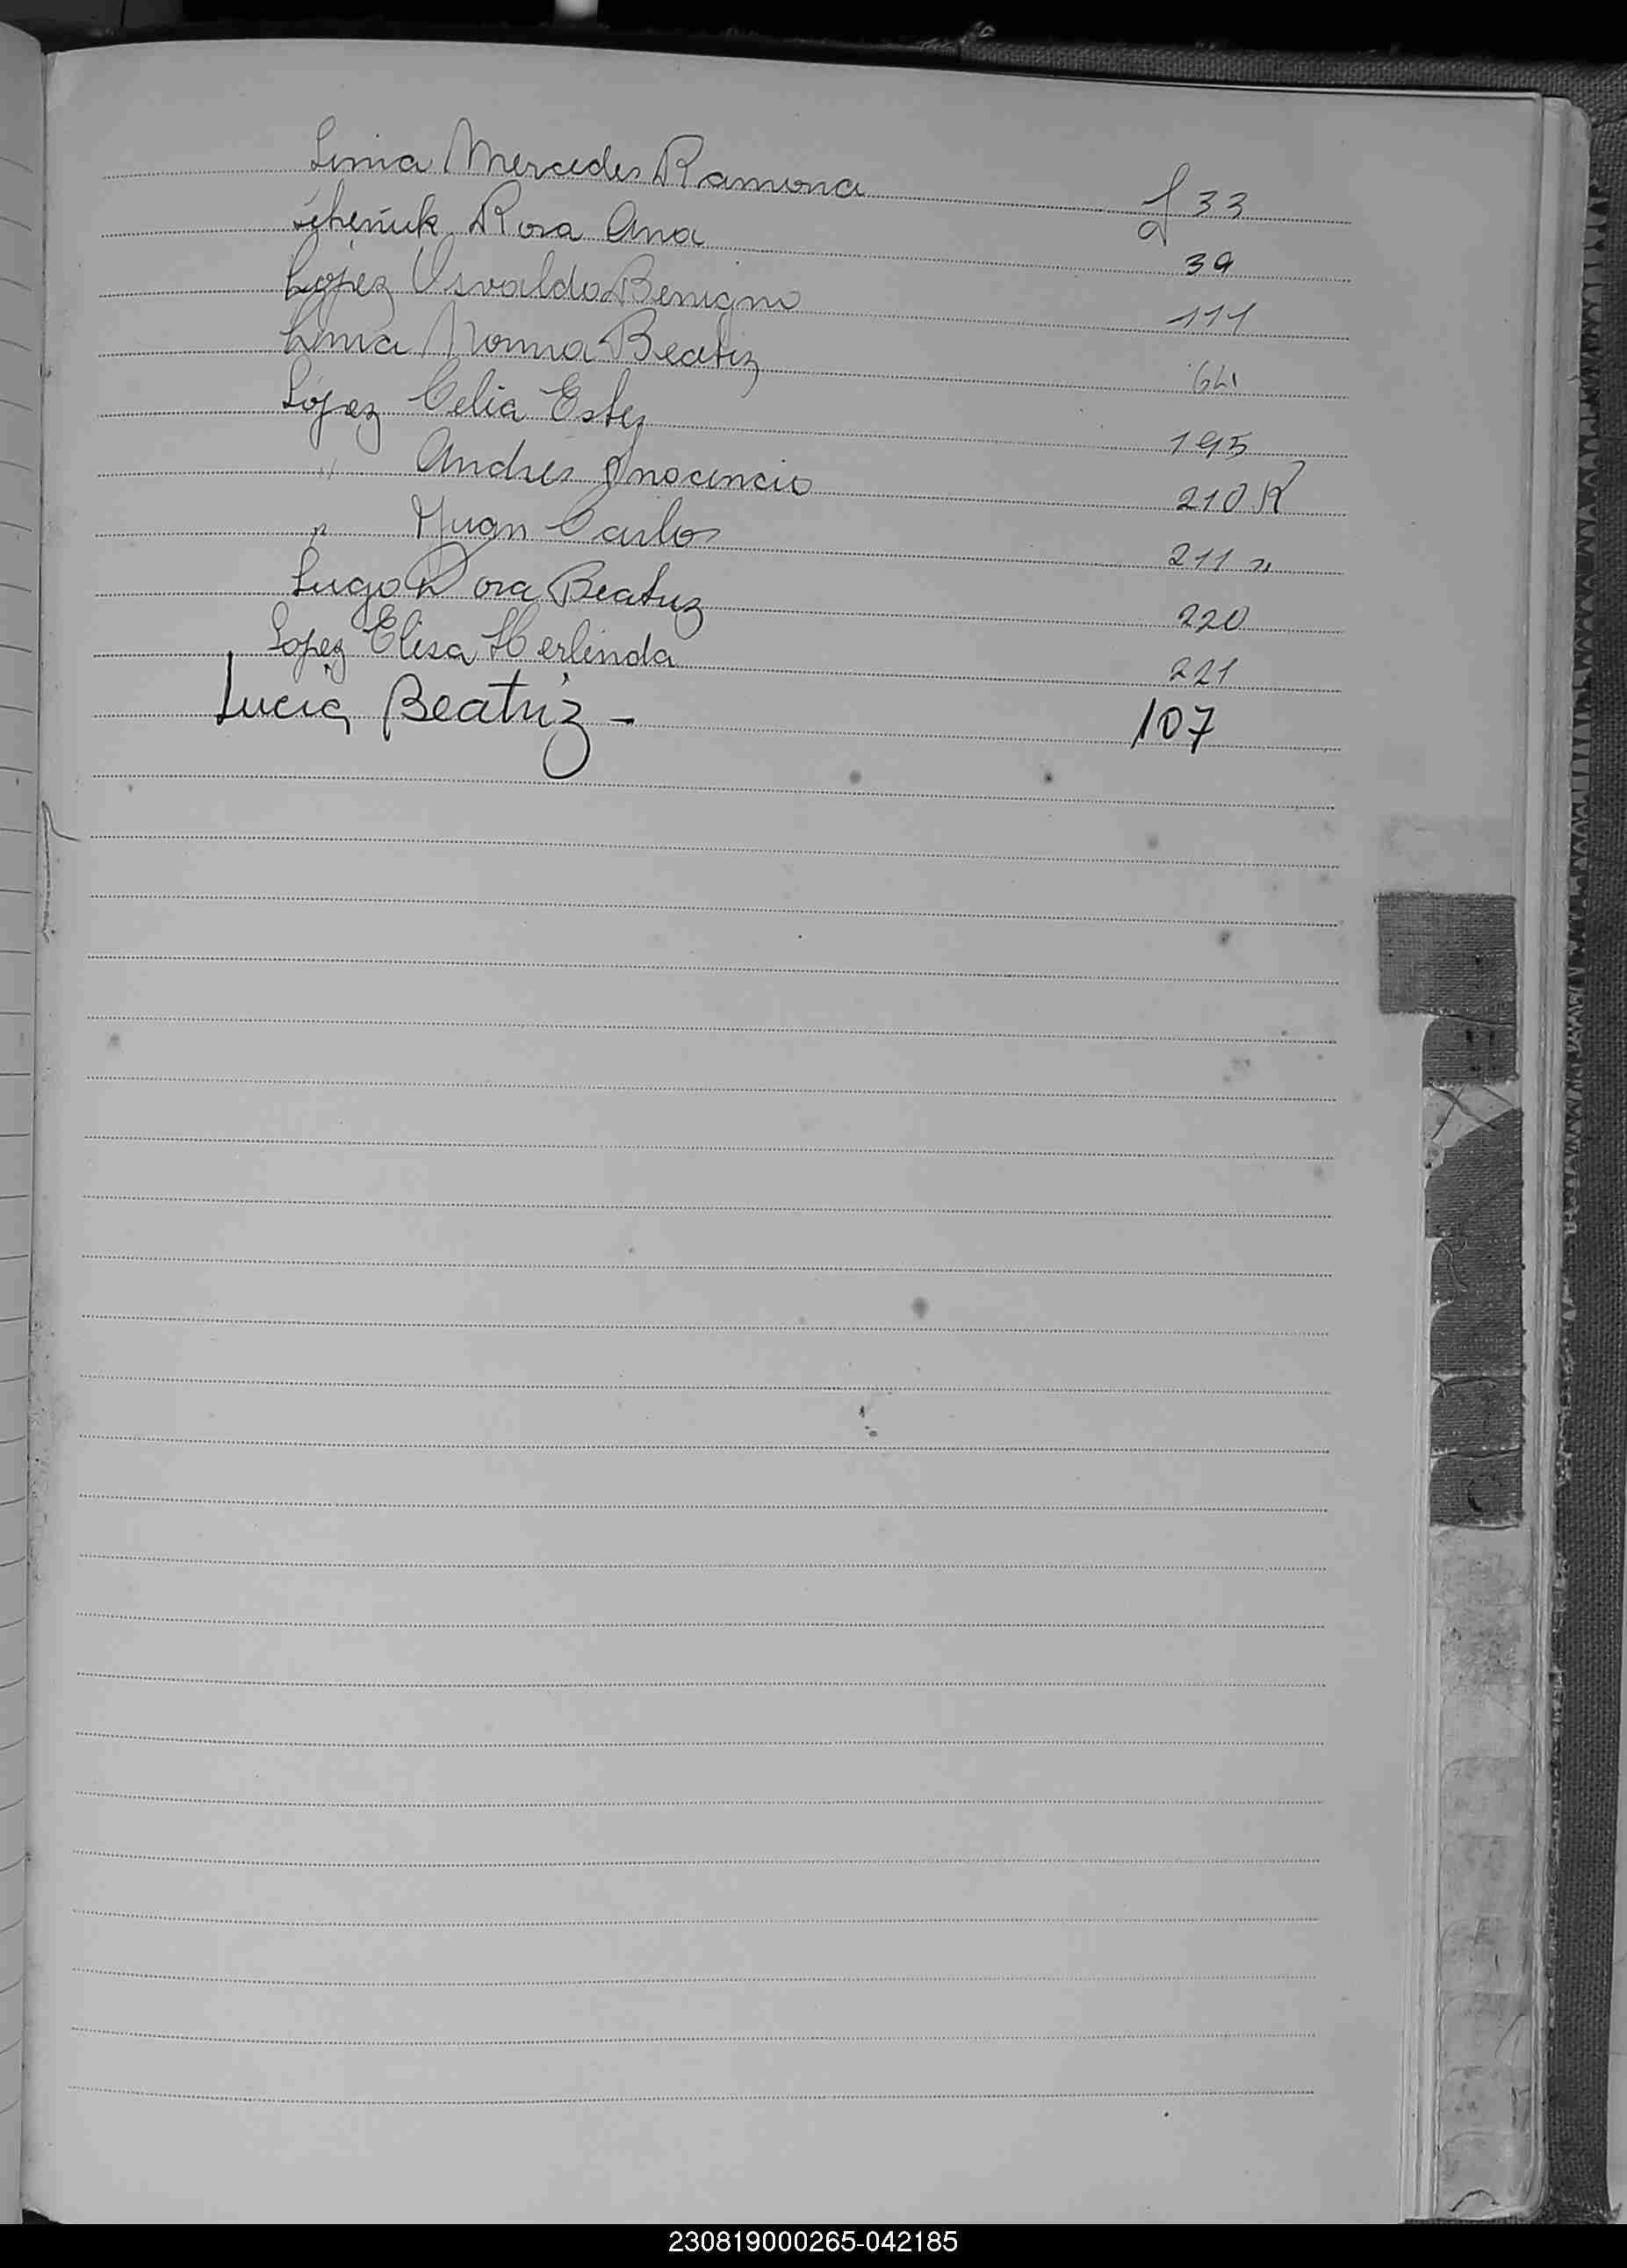 Lima Mercedes Ramona f 33
Rosa Ana 39
Lopez Osvaldo Benigno 111
Lima Norma Beatriz 64
López Celia Ester 195
" Andres Ynocencio 210 R
" Juan Carlos 211 "
Lugo Dora Beatriz 220
Lopez Elisa Herlinda 221
Lucia Beatriz - 107
230819000265-042185